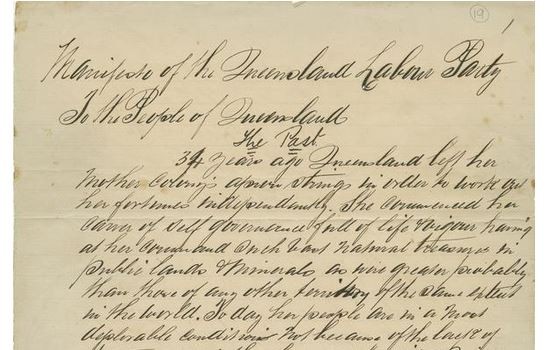 19
Manifesto of the Queensland Labour Party
To the People of Queensland
The Past
34 years ago Queensland left her
Mother Colony's apron strings in order to work out
her fortunes independently. She commenced her
career of self governance full of life & vigour having
at her command such vast natural treasures in
public lands & minerals as were greater probably
than those of any other territory of the same extent
in the world. To day her people are in a most
deplorable condition not because of the lack of